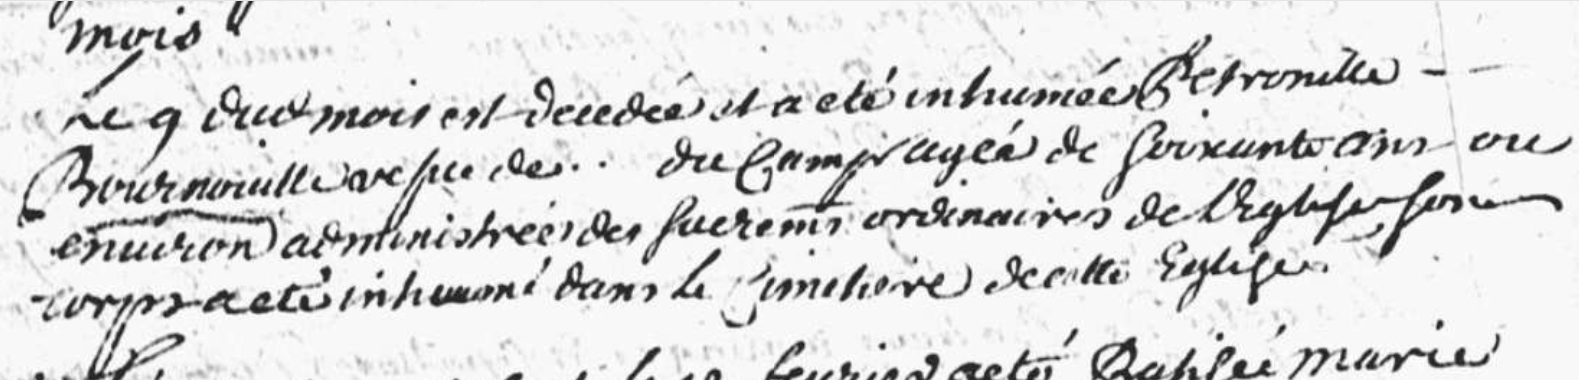 mois
Le 9 dudt mois est decedée et a eté inhumée Petronille
Bournouille vefue de .. du Camp agéa de soixante ans ou
environ administrée des sacremts ordinaires de l'Eglise, son
corps a eté inhumé dans le Cimetiere de cette Eglise.
fevrier a eté Baptisée marie